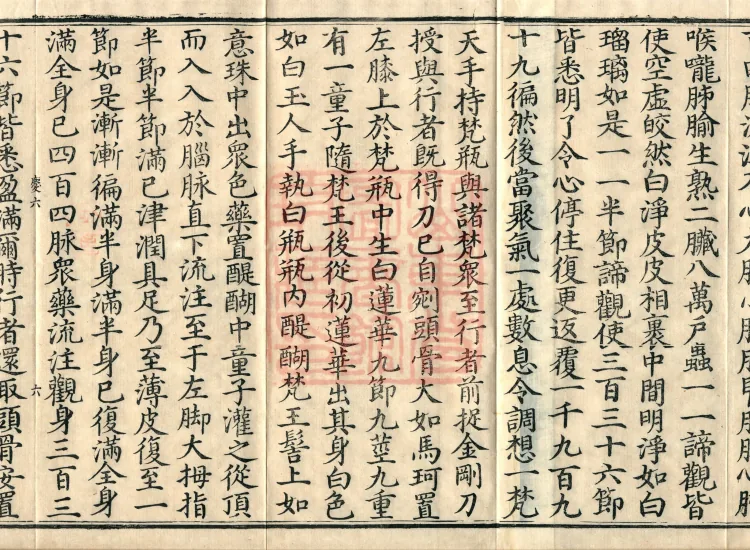 喉嚨肺腧生熟二臟八萬戶蟲一一諦觀皆
使空虛皎然白淨皮皮相裹中間明淨如白
瑠璃如是一一半節諦觀使三百三十六節
皆悉明了令心停住復更返覆一千九百九
十九徧然後當聚氣一處數息令調想一梵
天手持梵瓶與諸梵衆至行者前捉金剛刀
授與行者旣得刀已自剜頭骨大如馬珂置
左膝上於梵瓶中生白蓮華九節九莖九重
有一童子隨梵王後從初蓮華出其身白色
如白玉人手執白瓶瓶內醍醐梵王髻上如
意珠中出衆色藥置醍醐中童子灌之從頂
而入入於腦脉直下流注至于左脚大拇指
半節半節滿已津潤具足乃至薄皮復至一
節如是漸漸徧滿半身滿半身已復滿全身
滿全身已四百四脉衆藥流注觀身三百三
六 六
十六節皆悉盈滿爾時行者還取頭骨安置